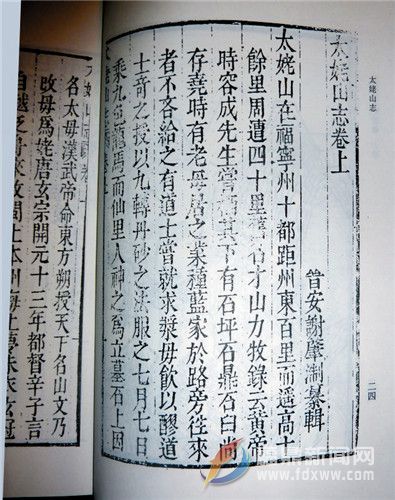 太姥山志
二四
太姥山志卷上
晉安謝肇淛纂輯
太姥山在福寧州十都距州東百里而遙高十
餘里周遭四十里舊名才山力牧錄云黃帝
時容成先生嘗栖其下有石坪石鼎石臼尚
存堯時有老母居之業種藍家於路旁往來
者不吝給之有道士嘗就求漿母飲以醪道
士奇之授以九轉丹砂之法服之七月七日
乘九色龍馬而仙里人神之為立墓石上因
名太母漢武帝命東方朔授天下名山文乃
改母為姥唐玄宗開元十三年都督辛子言
自越泛舟來牧閩止本州海上夢朱衣玄冠
福鼎新闻网
www.fdxww.com